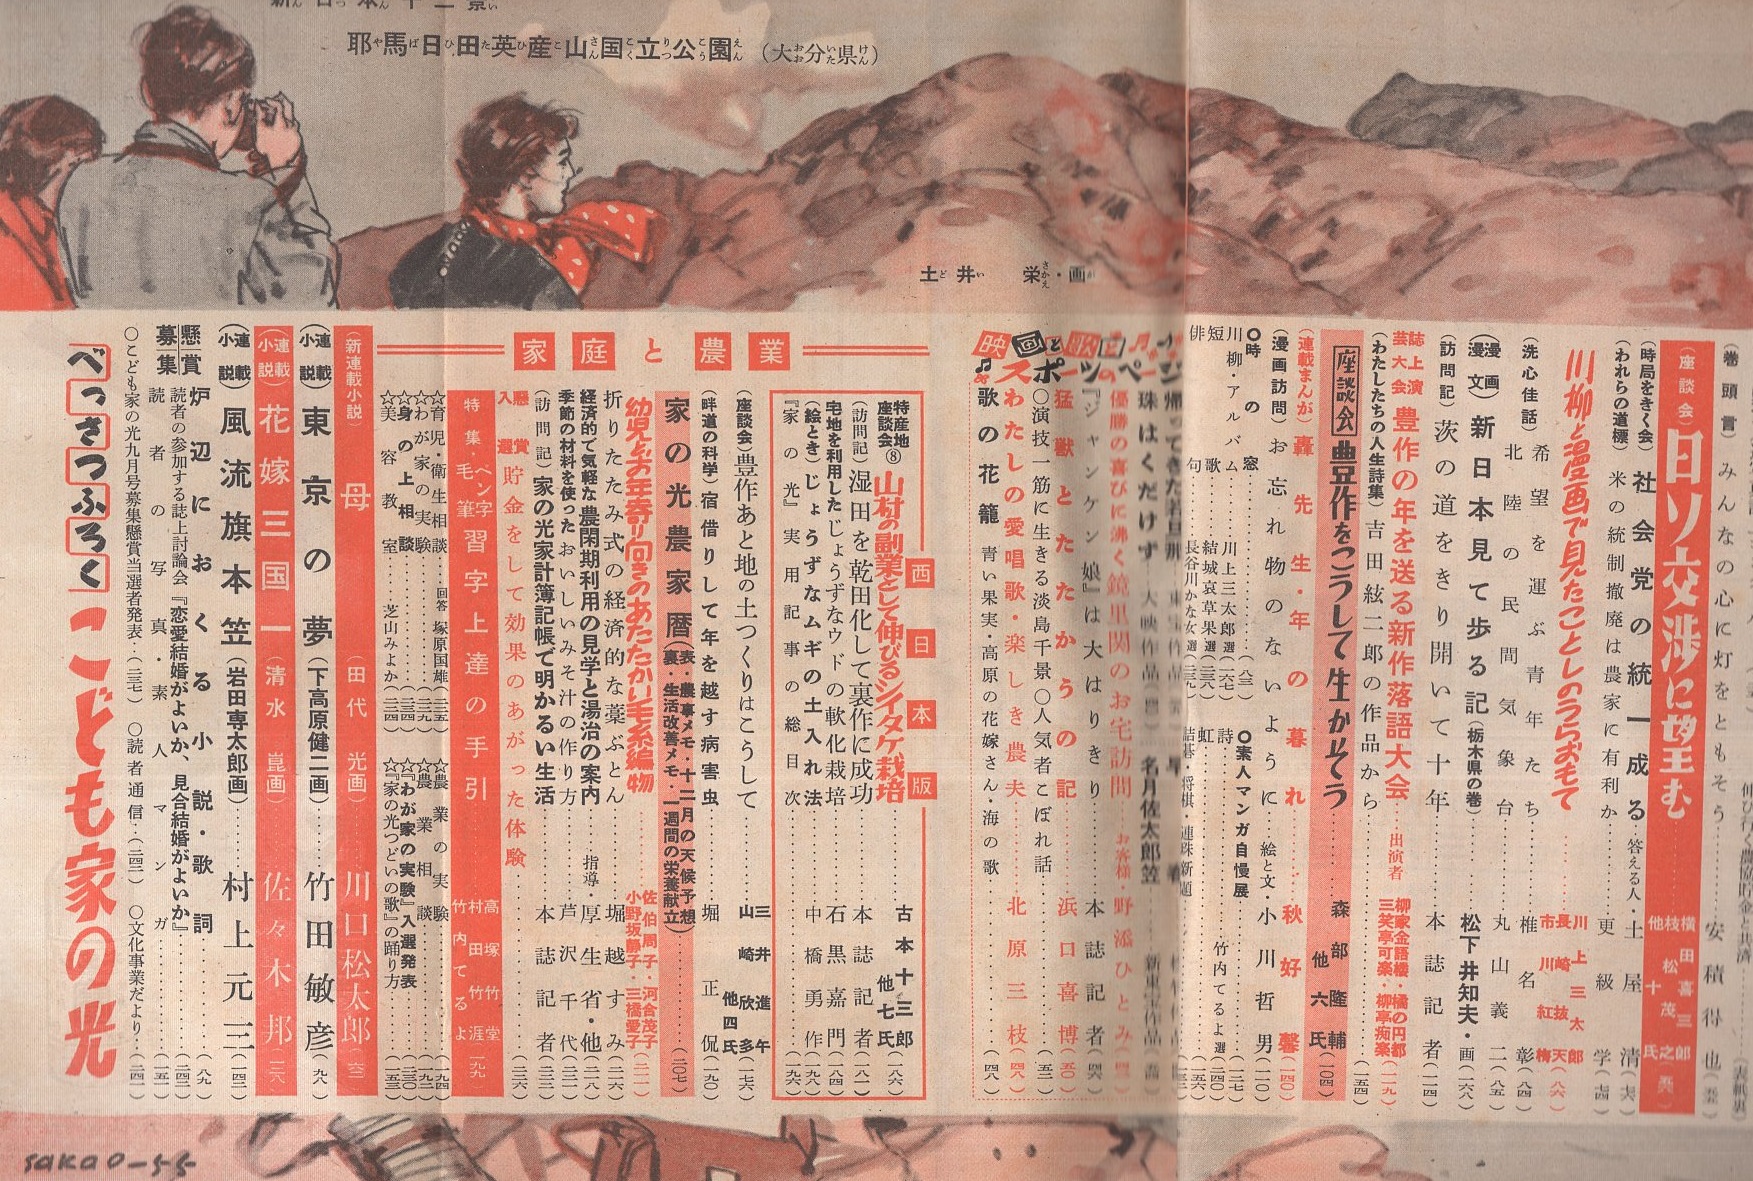 耶馬日田英彦山国立公園（大分県）
土井 栄・画
（巻頭言）みんなの心に灯をともそう 安積得也
（座談会）日ソ交渉に望む 横田喜三郎 枝松茂之 他十氏
（時局をきく会）社会党の統一成る 答える人・土屋清
（われらの道標）米の統制撤廃は農家に有利か 更級学
川柳と漫画で見たことしのうらおもて 川上三太郎 長崎抜天 市川紅梅（一八六）
希望を運ぶ青年たち 椎名彰（八四）
（洗心佳話）北陸の民間気象台 丸山義二（八五）
（漫画漫文）新日本見て歩る記（栃木県の巻） 松下井知夫・画（一六八）
（訪問記）茨の道をきり開いて十年 本誌記者（一一四）
誌上演芸大会 豊作の年を送る新作落語大会 出演者 柳家金語楼・橘の円都 三笑亭可楽・柳亭痴楽（一一九）
（わたしたちの人生詩集）吉田絃二郎の作品から（一五四）
座談会 豊作をこうして生かそう 森部隆輔 他六氏（一〇四）
（連載まんが）轟先生・年の暮れ 秋好馨（一四〇）
（漫画訪問）お忘れ物のないように 絵と文・小川哲男（一一〇）
〇時の窓（八三）
〇素人マンガ自慢展（一三七）
川柳・アルバム 川上三太郎選（六七）
詩 竹内てるよ選（二四〇）
短歌 結城哀草果選（二三八）
虹（一五六）
俳句 長谷川かな女選（二三九）
詰碁・将棋・連珠新題
映画と歌と♪スポーツのページ
珠はくだけず 大映作品 名月佐太郎笠
優勝の喜びに沸く鏡里関のお宅訪問 お客様・野添ひとみ
『ジャンケン娘』は大はりきり 本誌記者（四六）
猛獣とたたかうの記 浜口喜博（五〇）
〇演技一筋に生きる淡島千景〇人気者こぼれ話（五二）
わたしの愛唱歌・楽しき農夫 北原三枝（四八）
歌の花籠 青い果実・高原の花嫁さん・海の歌（四八）
家庭と農業
西日本版
特産地座談会⑧ 山村の副業として伸びるシイタケ栽培 古本十三郎 他七氏（一八六）
（訪問記）湿田を乾田化して裏作に成功 本誌記者（一八一）
宅地を利用したじょうずなウドの軟化栽培 石黒嘉門（一八四）
（絵とき）じょうずなムギの土入れ法 中橋勇作（一九八）
『家の光』実用記事の総目次（一九六）
（座談会）豊作あと地の土つくりはこうして 三井進午 山崎欣多 他四氏（一七六）
（畔道の科学）宿借りして年を越す病害虫 堀正侃（一九〇）
家の光農家暦（表・農事メモ・十二月の天候予想 裏・生活改善メモ・一週間の栄養献立）（二〇七）
幼児とお年寄り向きのあたたかい毛糸編物 佐伯周子・河合茂子 小野坂静子・三橋愛子（二一一）
折りたたみ式の経済的な藁ぶとん 堀越すみ（二二六）
経済的で気軽な農閑期利用の見学と湯治の案内 指導・厚生省・他（二一八）
季節の材料を使ったおいしいみそ汁の作り方 芦沢千代（二三一）
（訪問記）家の光家計簿記帳で明かるい生活 本誌記者（二三三）
懸賞入選 貯金をして効果のあがった体験（二三六）
特集・ペン字毛筆 習字上達の手引 高塚竹堂 村田竹涯 竹内てるよ（一九九）
☆育児・衛生相談 回答 塚原国雄（二三五）
☆農業の実験（一九四）
☆わが家の実験（二三九）
☆農業相談（一九二）
☆身の上相談（二三四）
☆『わが家の実験』入選発表（二三〇）
☆美容教室 芝山みよか（二二四）
☆『家の光つどいの歌』の踊り方（一五三）
（新連載小説）母 田代光画 川口松太郎（六二）
（連載小説）東京の夢（下高原健二画） 竹田敏彦（九八）
（連載小説）花嫁三国一（清水崑画） 佐々木邦（二八）
（連載小説）風流旗本笠（岩田専太郎画） 村上元三（一四二）
懸賞募集
炉辺におくる小説・歌詞（八九）
読者の参加する誌上討論会『恋愛結婚がよいか、見合結婚がよいか』（二四二）
読者の写真・素人マンガ（一五一）
〇こども家の光九月号募集懸賞当選者発表（一三七） 〇読者通信（二四二） 〇文化事業だより（二四一）
べっさつふろく こども家の光
sakao-55